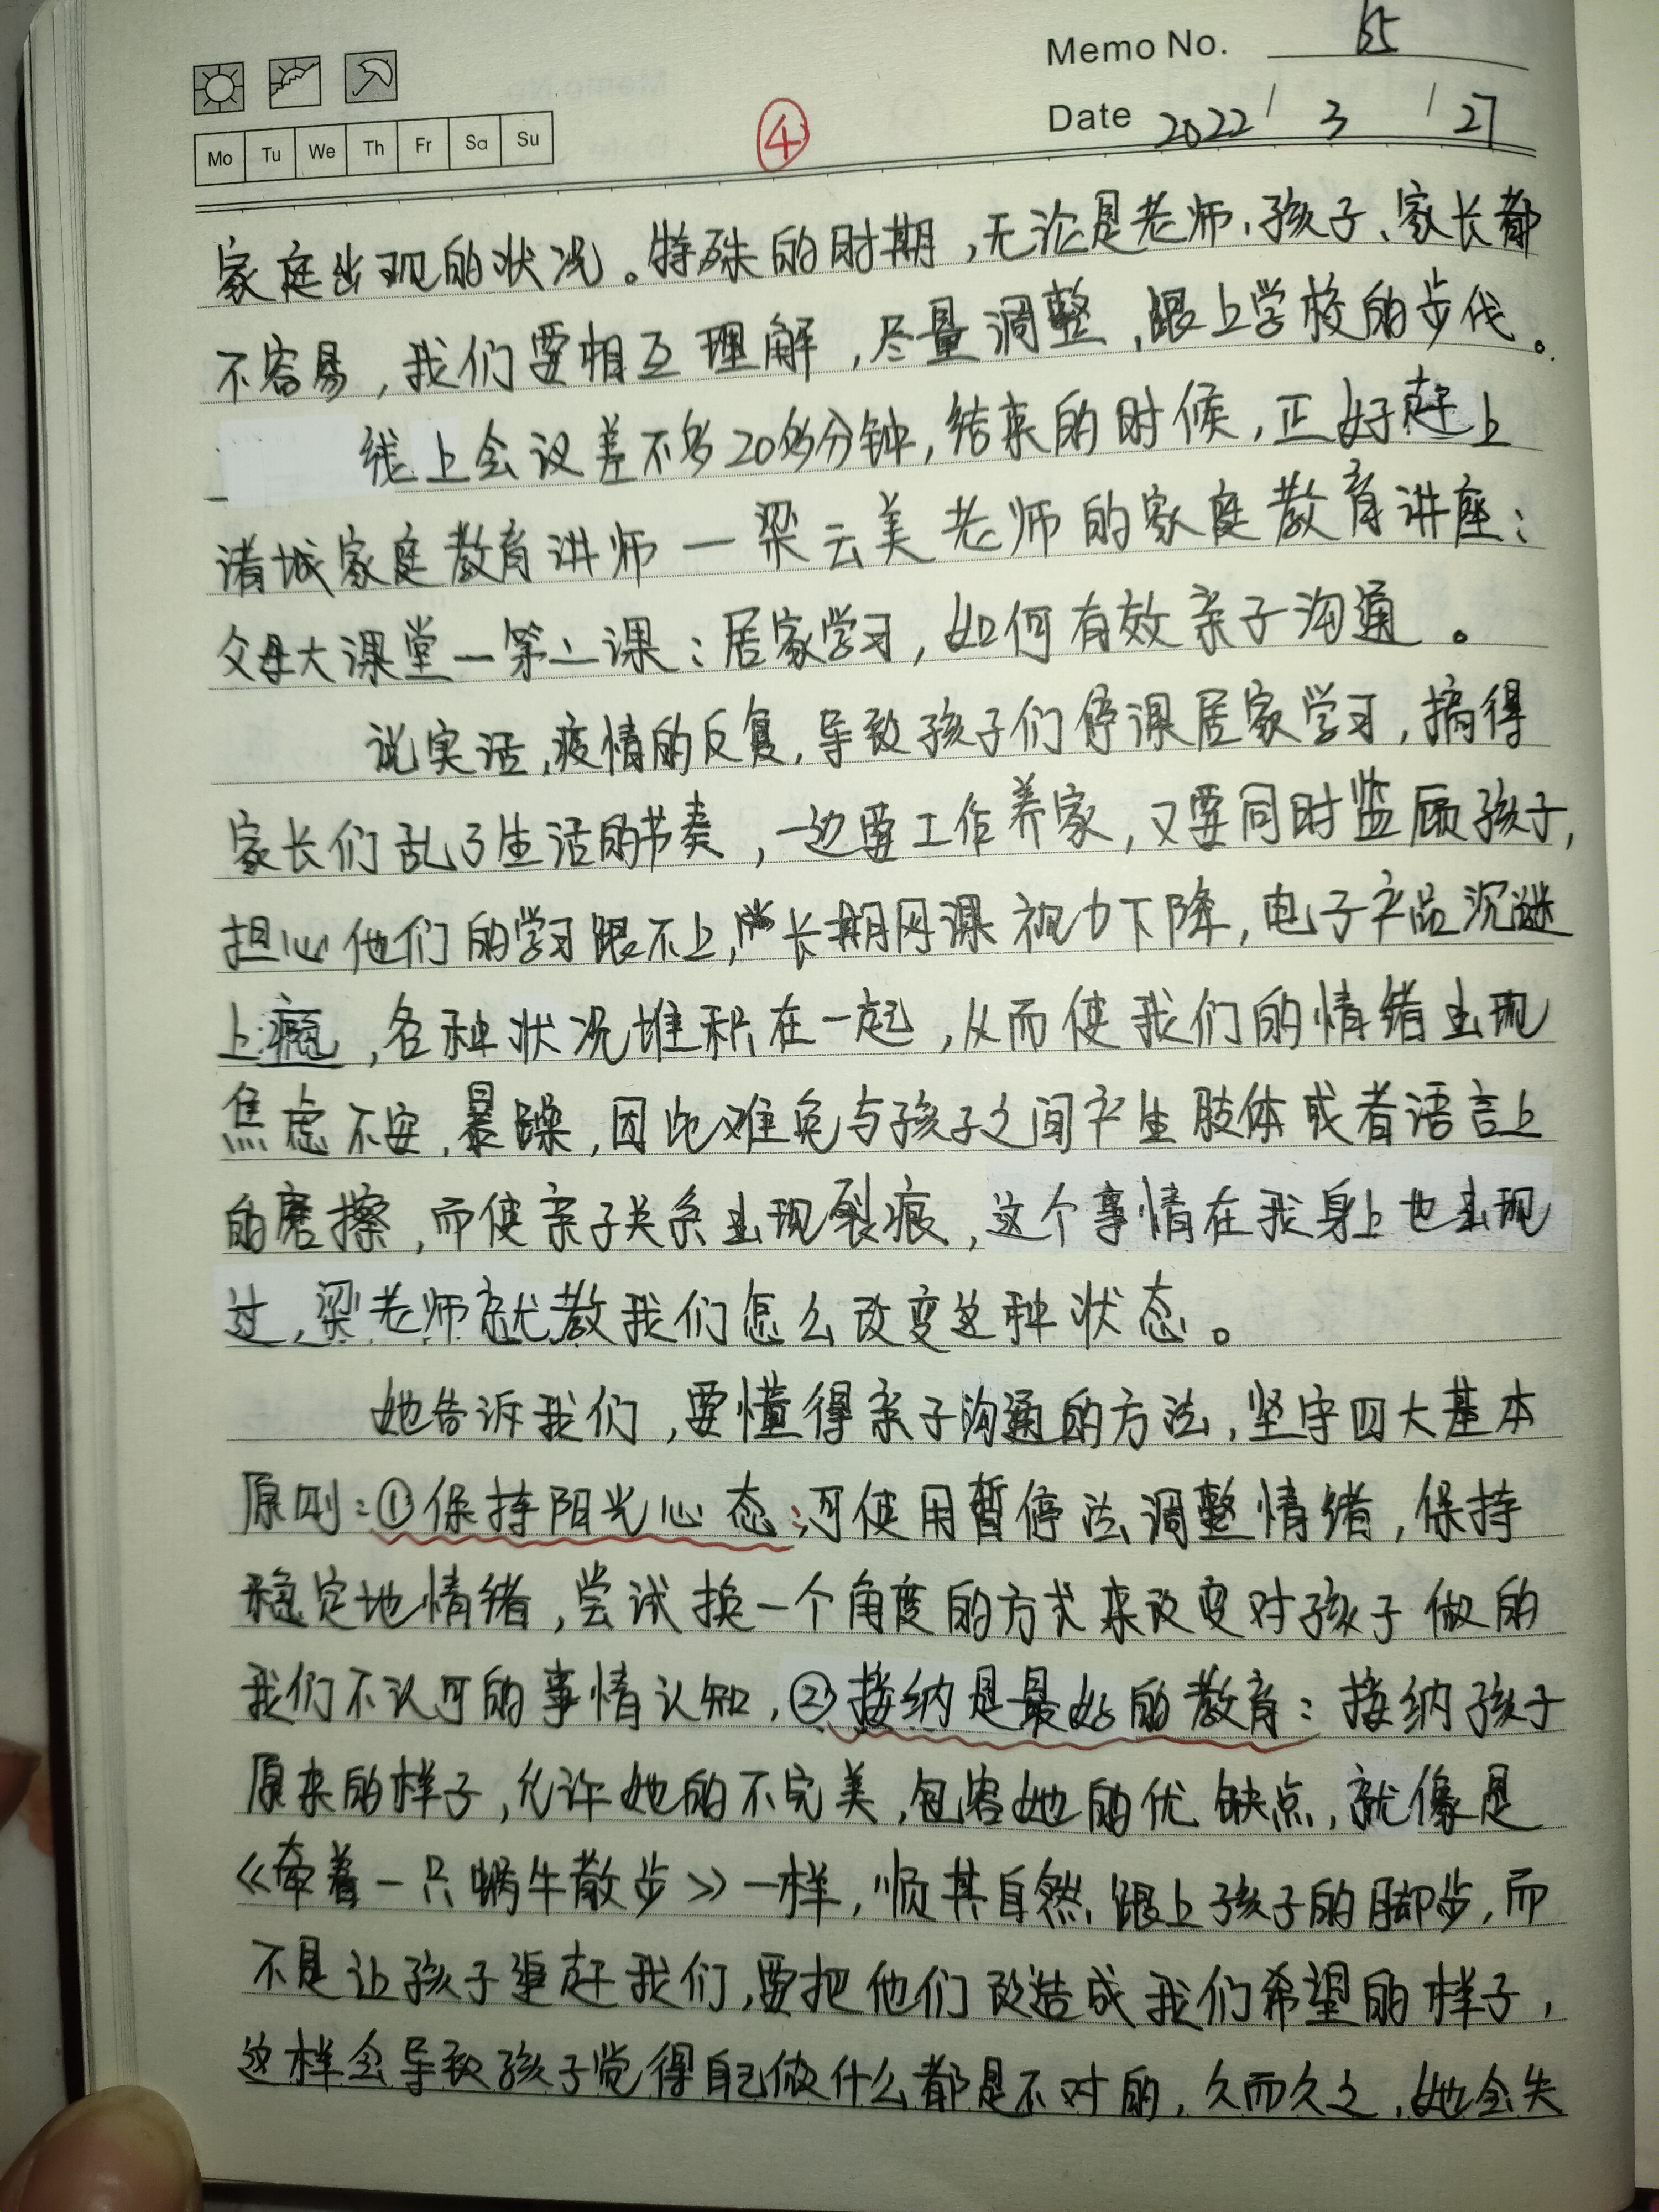 Memo No. 65
Mo Tu We Th Fr Sa Su
④
Date 2022 / 3 / 27
家庭出现的状况。特殊的时期,无论是老师、孩子、家长都
不容易,我们要相互理解,尽量调整,跟上学校的步伐。
线上会议差不多20多分钟,结束的时候,正好赶上
诸城家庭教育讲师一梁云美老师的家庭教育讲座:
父母大课堂一第二课:居家学习,如何有效亲子沟通。
说实话,疫情的反复,导致孩子们停课居家学习,搞得
家长们乱了生活的节奏,一边要工作养家,又要同时监顾孩子,
担心他们的学习跟不上,长期网课视力下降,电子产品沉谜
上瘾,各种状况堆积在一起,从而使我们的情绪出现
焦虑不安,暴躁,因此难免与孩子之间产生肢体或者语言上
的磨擦,而使亲子关系出现裂痕,这个事情在我身上也出现
过,梁老师就教我们怎么改变这种状态。
她告诉我们,要懂得亲子沟通的方法,坚守四大基本
原则:①保持阳光心态:可使用暂停法调整情绪,保持
稳定地情绪,尝试换一个角度的方式来改变对孩子做的
我们不认可的事情认知,②接纳是最好的教育:接纳孩子
原来的样子,允许她的不完美,包容她的优缺点,就像是
《牵着一只蜗牛散步》一样,顺其自然,跟上孩子的脚步,而
不是让孩子追赶我们,要把他们改造成我们希望的样子,
这样会导致孩子觉得自己做什么都是不对的,久而久之,她会失